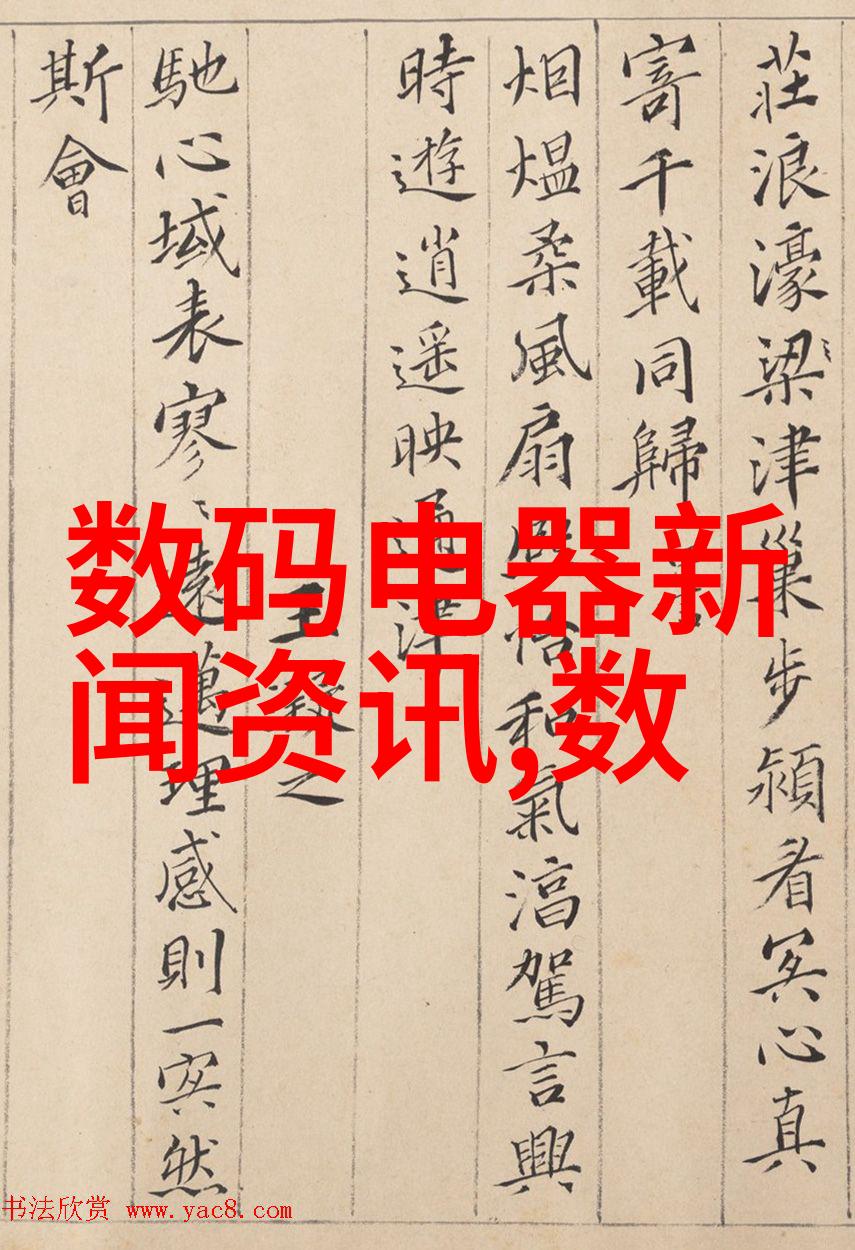 数码电器新
闻资讯,数
莊浪濠梁津巢步潁冥心真
寄千載同歸
烟熅柔風扇熙怡和氣駕言興
時遊逍遥映通津
王凝之
馳心域表寥〻遠邁理感則一冥然
斯會
书法欣赏 www.yac8.com